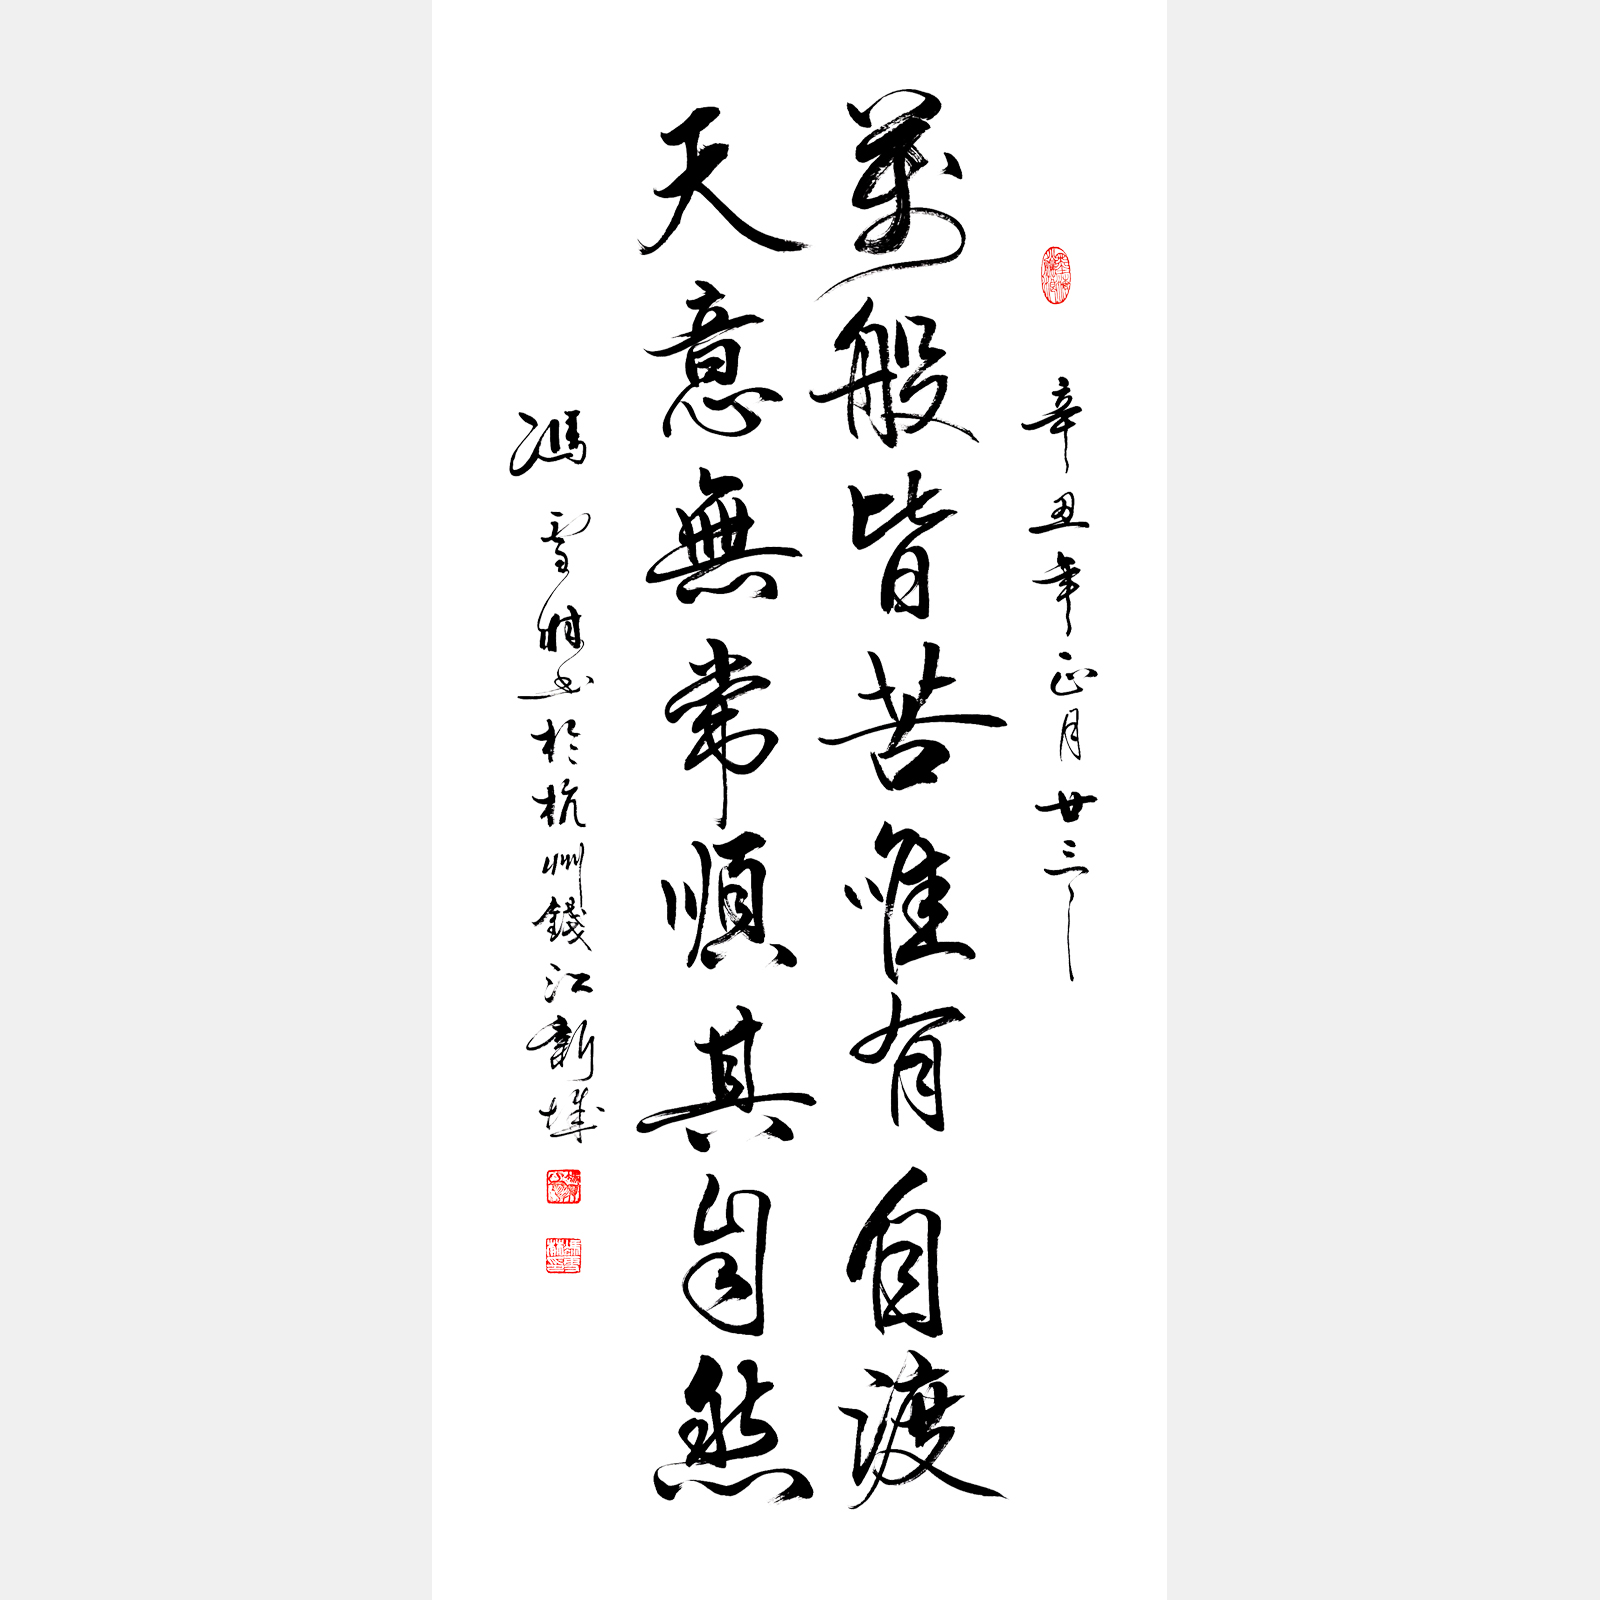 辛丑年正月廿三
萬般皆苦唯有自渡
天意無常順其自然
馮雪林書於杭州錢江新城